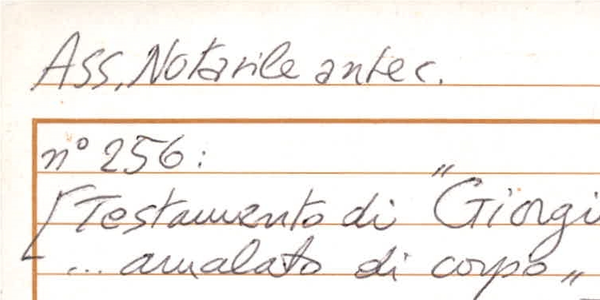 Ass. Notarile antec.
n° 256:
[Testamento di "Giorgi
... amalato di corpo„